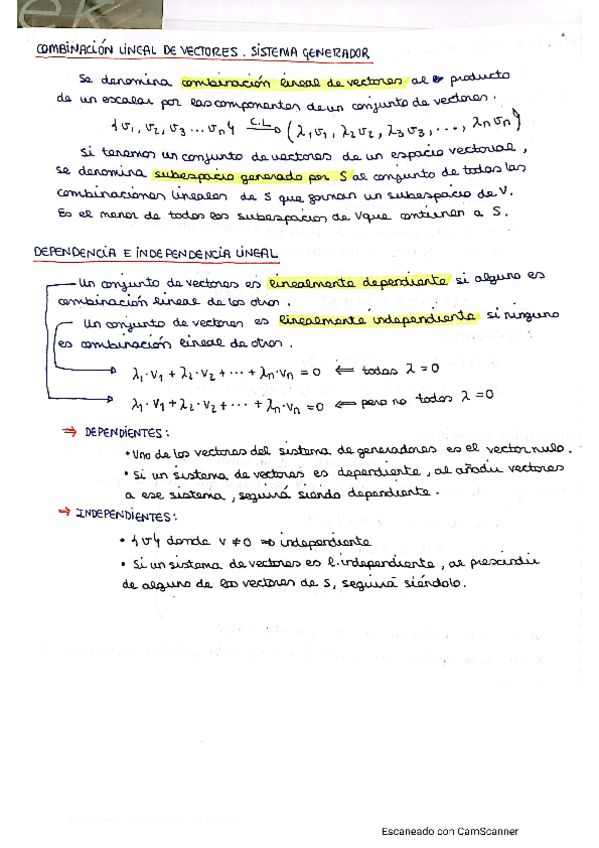 ek
COMBINACIÓN LINEAL DE VECTORES. SISTEMA GENERADOR
Se denomina combinación lineal de vectores al producto
de un escalar por las componentes de un conjunto de vectores.
{v₁, v₂, v₃ ... vₙ} C.L→ (λ₁v₁, λ₂v₂, λ₃v₃, ..., λₙvₙ)
Si tenemos un conjunto de vectores de un espacio vectorial,
se denomina subespacio generado por S al conjunto de todas las
combinaciones lineales de S que forman un subespacio de V.
Es el menor de todos los subespacios de V que contienen a S.
DEPENDENCIA E INDEPENDENCIA LINEAL
Un conjunto de vectores es linealmente dependiente si alguno es
combinación lineal de los otros.
Un conjunto de vectores es linealmente independiente si ninguno
es combinación lineal de otros.
λ₁·v₁ + λ₂·v₂ + ... + λₙ·vₙ = 0 ⇐ todas λ = 0
λ₁·v₁ + λ₂·v₂ + ... + λₙ·vₙ = 0 ⇐ pero no todos λ = 0
⇒ DEPENDIENTES:
• Uno de los vectores del sistema de generadores es el vector nulo.
• Si un sistema de vectores es dependiente, al añadir vectores
a ese sistema, seguirá siendo dependiente.
⇒ INDEPENDIENTES:
• {v} donde v ≠ 0 ⇒ independiente
• Si un sistema de vectores es l. independiente, al prescindir
de alguno de los vectores de S, seguirá siéndolo.
Escaneado con CamScanner